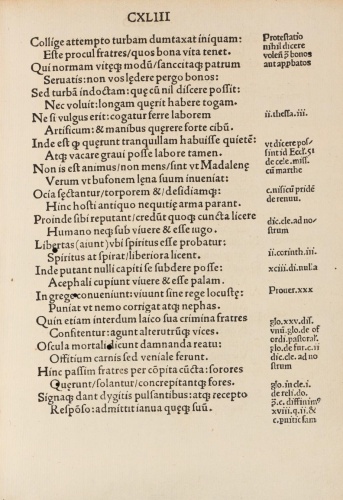 CXLIII
Collige attempto turbam dumtaxat iniquam:
Este procul fratres/quos bona vita tenet.
Qui normam vitęq; modū/sanccitaq; patrum
Seruatis: non vos lędere pergo bonos:
Sed turbā indoctam: quę cū nil discere possit:
Nec voluit: longam quęrit habere togam.
Ne si vulgus erit: cogatur ferre laborem
Artificum: & manibus quęrere forte cibū.
Inde est q quęrunt tranquillam habuisse quietē:
Atq; vacare graui posse labore tamen.
Non is est animus/non mens/sint vt Madalenę
Verum vt bufonem lena suum inueniat:
Ocia sęctantur/torporem &/desidiamq;:
Hinc hosti antiquo nequitię arma parant.
Proinde sibi reputant/credūt quoq; cuncta licere
Humano neq; sub viuere & esse iugo.
Libertas (aiunt) vbi spiritus esse probatur:
Spiritus at spirat/liberiora licent.
Inde putant nulli capiti se subdere posse:
Acephali cupiunt viuere & esse palam.
In grege conueniunt: viuunt sine rege locustę:
Puniat vt nemo corrigat atq; nephas.
Quin etiam interdum laico sua crimina fratres
Confitentur: agunt alterutrūq; vices.
Oscula mortali dicunt damnanda reatu:
Offitium carnis sed veniale ferunt.
Hinc passim fratres per cōpita cūcta: sorores
Quęrunt/solantur/concrepitantq; fores.
Signaq; dant dygitis pulsantibus: atq; recepto
Respōso: admittit ianua quęq; suū.
Protestatio
nihil dicere
volen̄ ꝓ bonos
aut appbatos
ii.thessa.iii.
vt dicere pos/
sint id Eccl.51
de cele.miss.
cū marthe
c.nisi cū pridē
de renun.
dic.cle.ad no/
strum
ii.corinth.iii.
xciii.di.nulla
Prouer.xxx
glo.xxv.dis.
vnū.glo.de of
ordi.pastoral.
glo.de fur.c.ii
dic.cle.ad no
strum
glo.in cle.i.
de reli.do.
ꝓ.c.diffinim⁹
xviii.q.ii.&
c.puitic sam